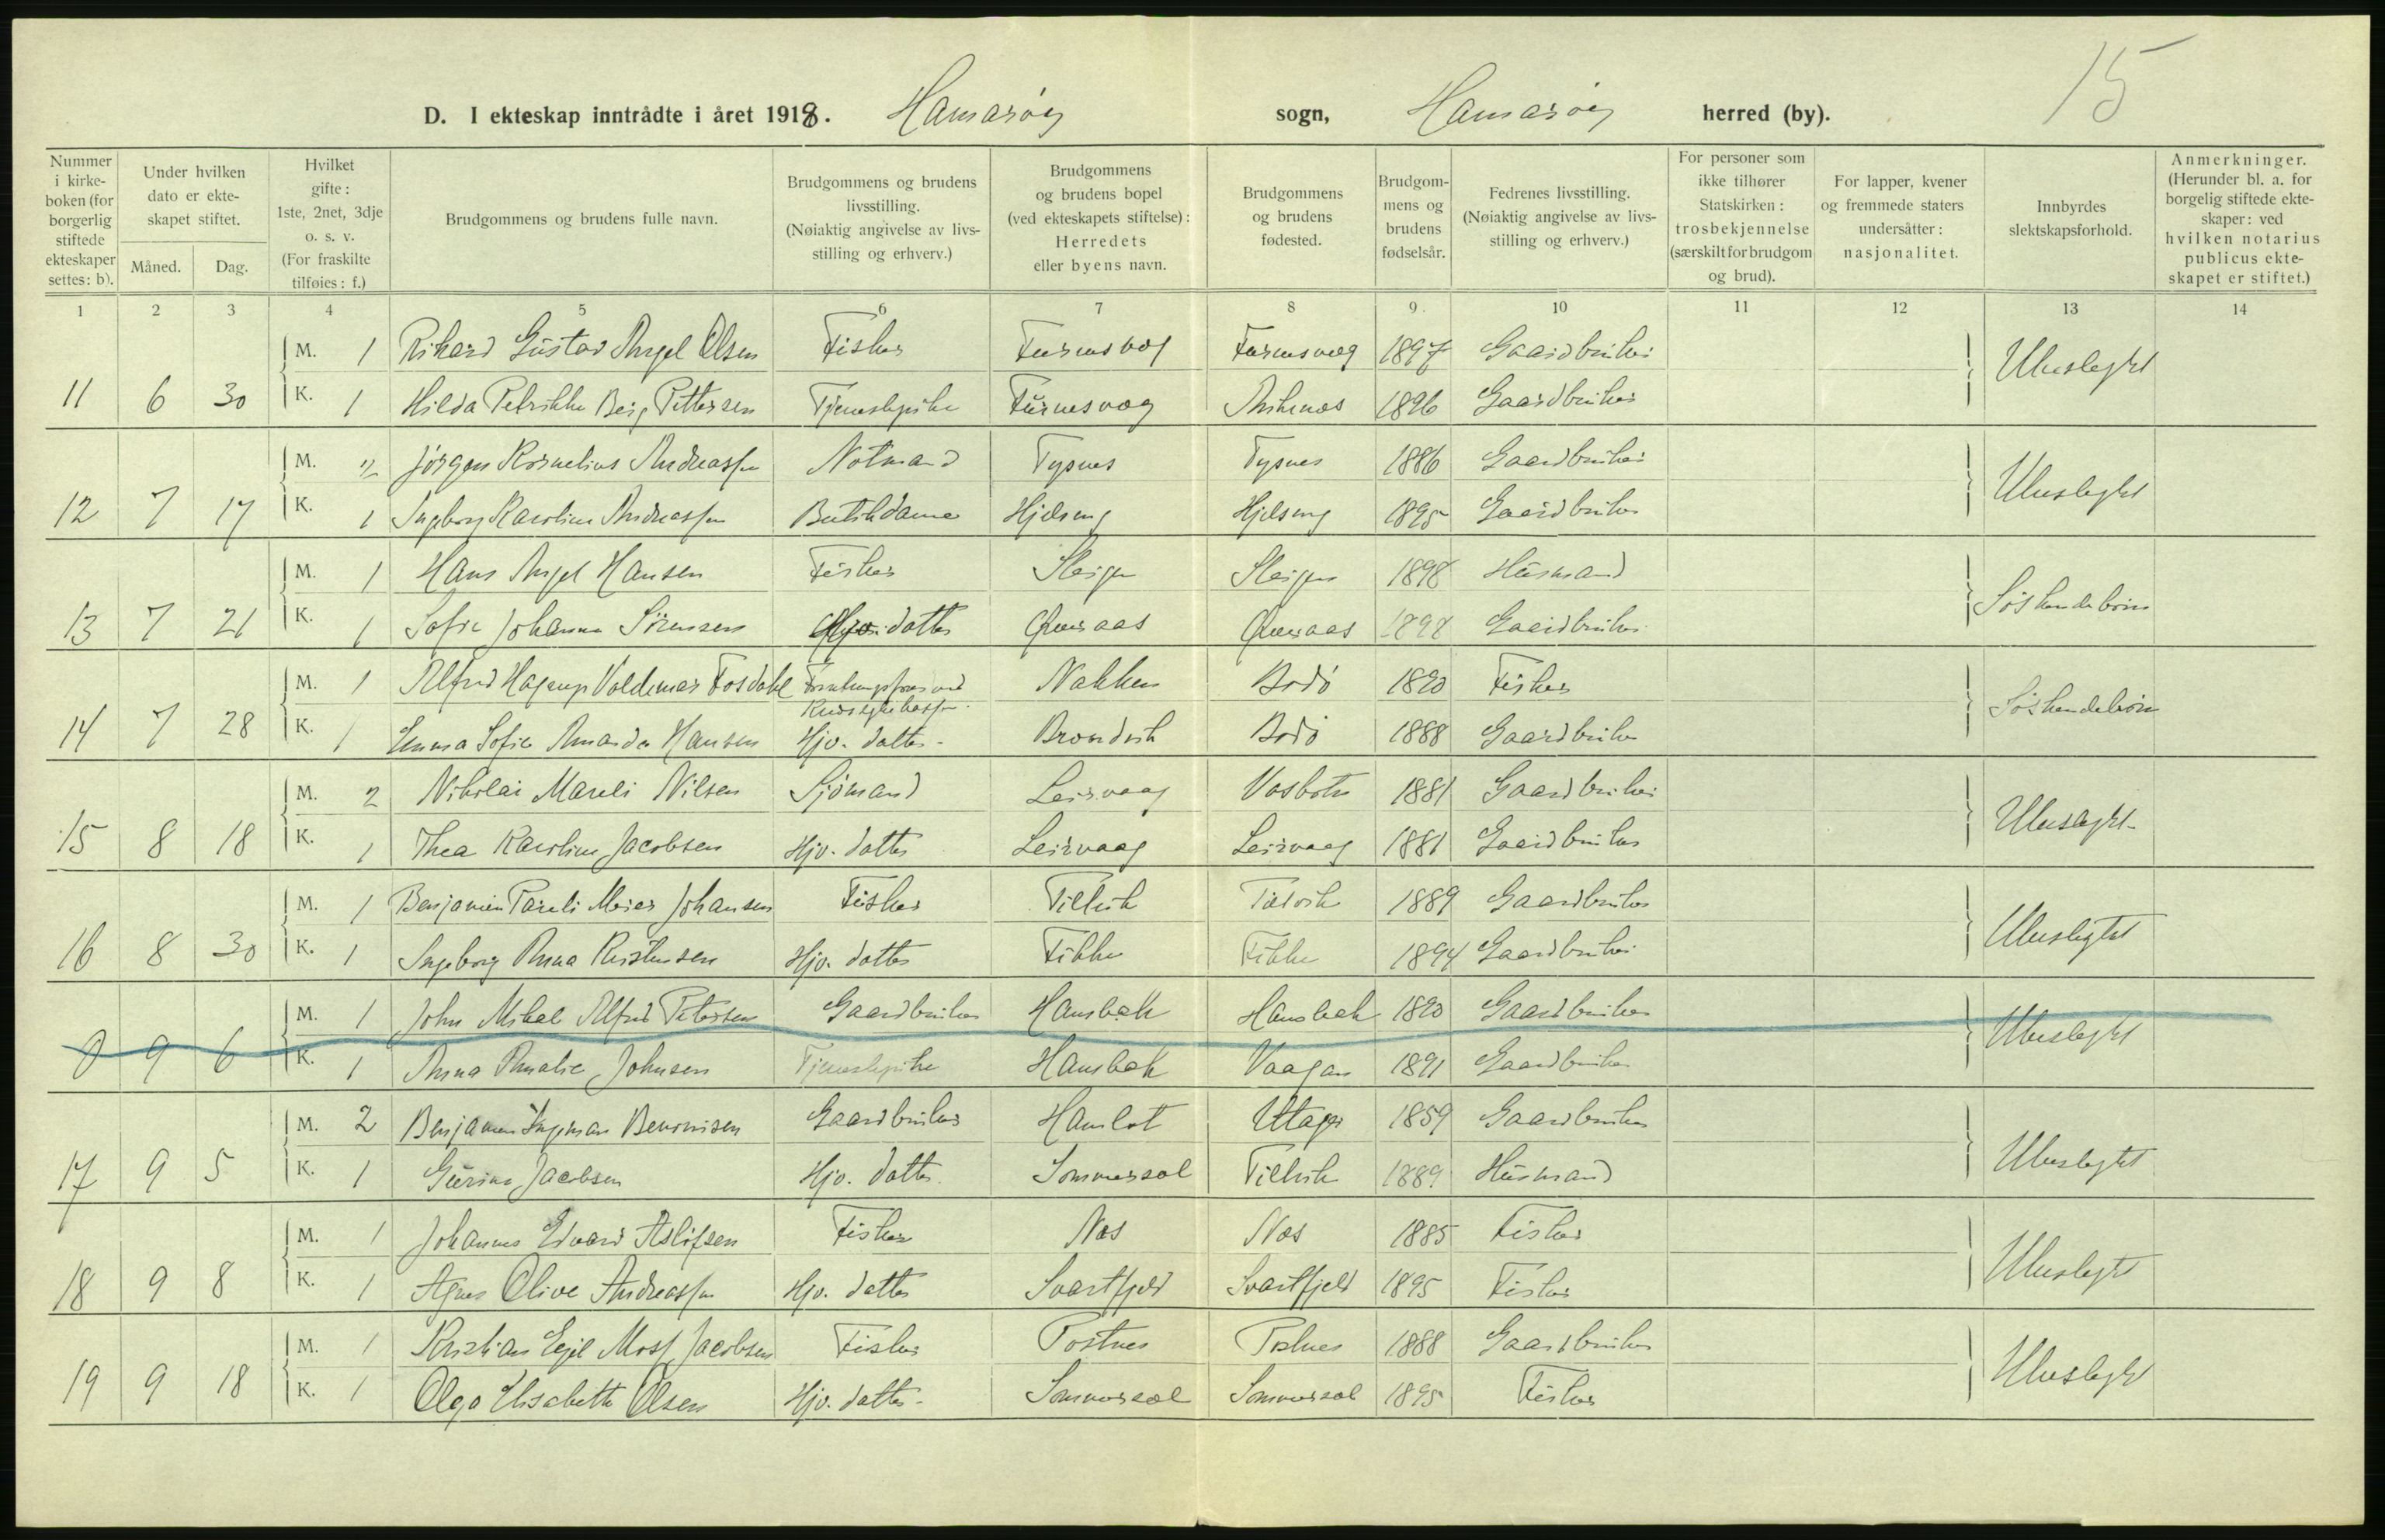 15
D. I ekteskap inntrådte i året 1918. Hamarøy sogn, Hamarøy herred (by).
Nummer i kirkeboken (for borgerlig stiftede ekteskaper settes: b).
Under hvilken dato er ekteskapet stiftet.
Måned. Dag.
Hvilket gifte: 1ste, 2net, 3dje o. s. v. (For fraskilte tilføies: f.)
Brudgommens og brudens fulle navn.
Brudgommens og brudens livsstilling. (Nøiaktig angivelse av livsstilling og erhverv.)
Brudgommens og brudens bopel (ved ekteskapets stiftelse): Herredets eller byens navn.
Brudgommens og brudens fødested.
Brudgommens og brudens fødselsår.
Fedrenes livsstilling. (Nøiaktig angivelse av livsstilling og erhverv.)
For personer som ikke tilhører Statskirken: trosbekjennelse (særskilt for brudgom og brud).
For lapper, kvener og fremmede staters undersåtter: nasjonalitet.
Innbyrdes slektskapsforhold.
Anmerkninger. (Herunder bl. a. for borgelig stiftede ekteskaper: ved hvilken notarius publicus ekteskapet er stiftet.)
1 2 3 4 5 6 7 8 9 10 11 12 13 14
M. 1 Rikard Gustav Angel Olsen Fisker Furnesvog Furnesvog 1897 Gaardbruker Ubeslegtet
11 6 30 K. 1 Hilda Petrikke Berg Pettersen Tjenestepike Furnesvog 1896 Gaardbruker
M. 2 Jørgen Kornelius Andreassen Notmand Tysnes Tysnes 1886 Gaardbruker Ubeslegtet
12 7 17 K. 1 Ingeborg Karoline Andreassen Butikdame 1895 Gaardbruker
M. 1 Hans Angel Hansen Fisker Steigen Steigen 1898 Husmand Søskendebørn
13 7 21 K. 1 Sofie Johanna Sørensen datter 1898 Gaardbruker
M. 1 Alfred Hagerup Valdemar Fosdahl Nakken Bodø 1890 Fisker Søskendebørn
14 7 28 K. 1 Emma Sofie Amanda Hansen Hjv. datter Bodø 1888 Gaardbruker
M. 2 Nikolai Mareli Nilsen Sjømand Leirvaag Vasbotn 1881 Gaardbruker Ubeslegtet
15 8 18 K. 1 Thea Karoline Jacobsen Hjv. datter Leirvaag Leirvaag 1881 Gaardbruker
M. 1 Benjamin Pareli Meier Johansen Fisker 1889 Gaardbruker Ubeslegtet
16 8 30 K. 1 Ingeborg Anna Kristensen Hjv. datter Fikke Fikke 1894 Gaardbruker
M. 1 John Mikal Alfred Petersen Gaardbruker Hamsbak Hamsbak 1890 Gaardbruker Ubeslegtet
0 9 6 K. 1 Anna Amalie Johnsen Tjenestepike Hamsbak Vaagan 1891 Gaardbruker
M. 2 Benjamin Ingeman Benonisen Gaardbruker Hamlot 1859 Gaardbruker Ubeslegtet
17 9 5 K. 1 Gurine Jacobsen Hjv. datter Sommersel 1889 Husmand
M. 1 Johannes Edvard Aslofsen Fisker Nes Nes 1885 Fisker Ubeslegtet
18 9 8 K. 1 Agnes Olive Andreassen Hjv. datter Svartfjeld Svartfjeld 1895 Fisker
M. 1 Kristian Egil Moss Jacobsen Fisker Postnes Postnes 1888 Gaardbruker Ubeslegtet
19 9 18 K. 1 Olga Elisabeth Olsen Hjv. datter Sommersel Sommersel 1895 Fisker